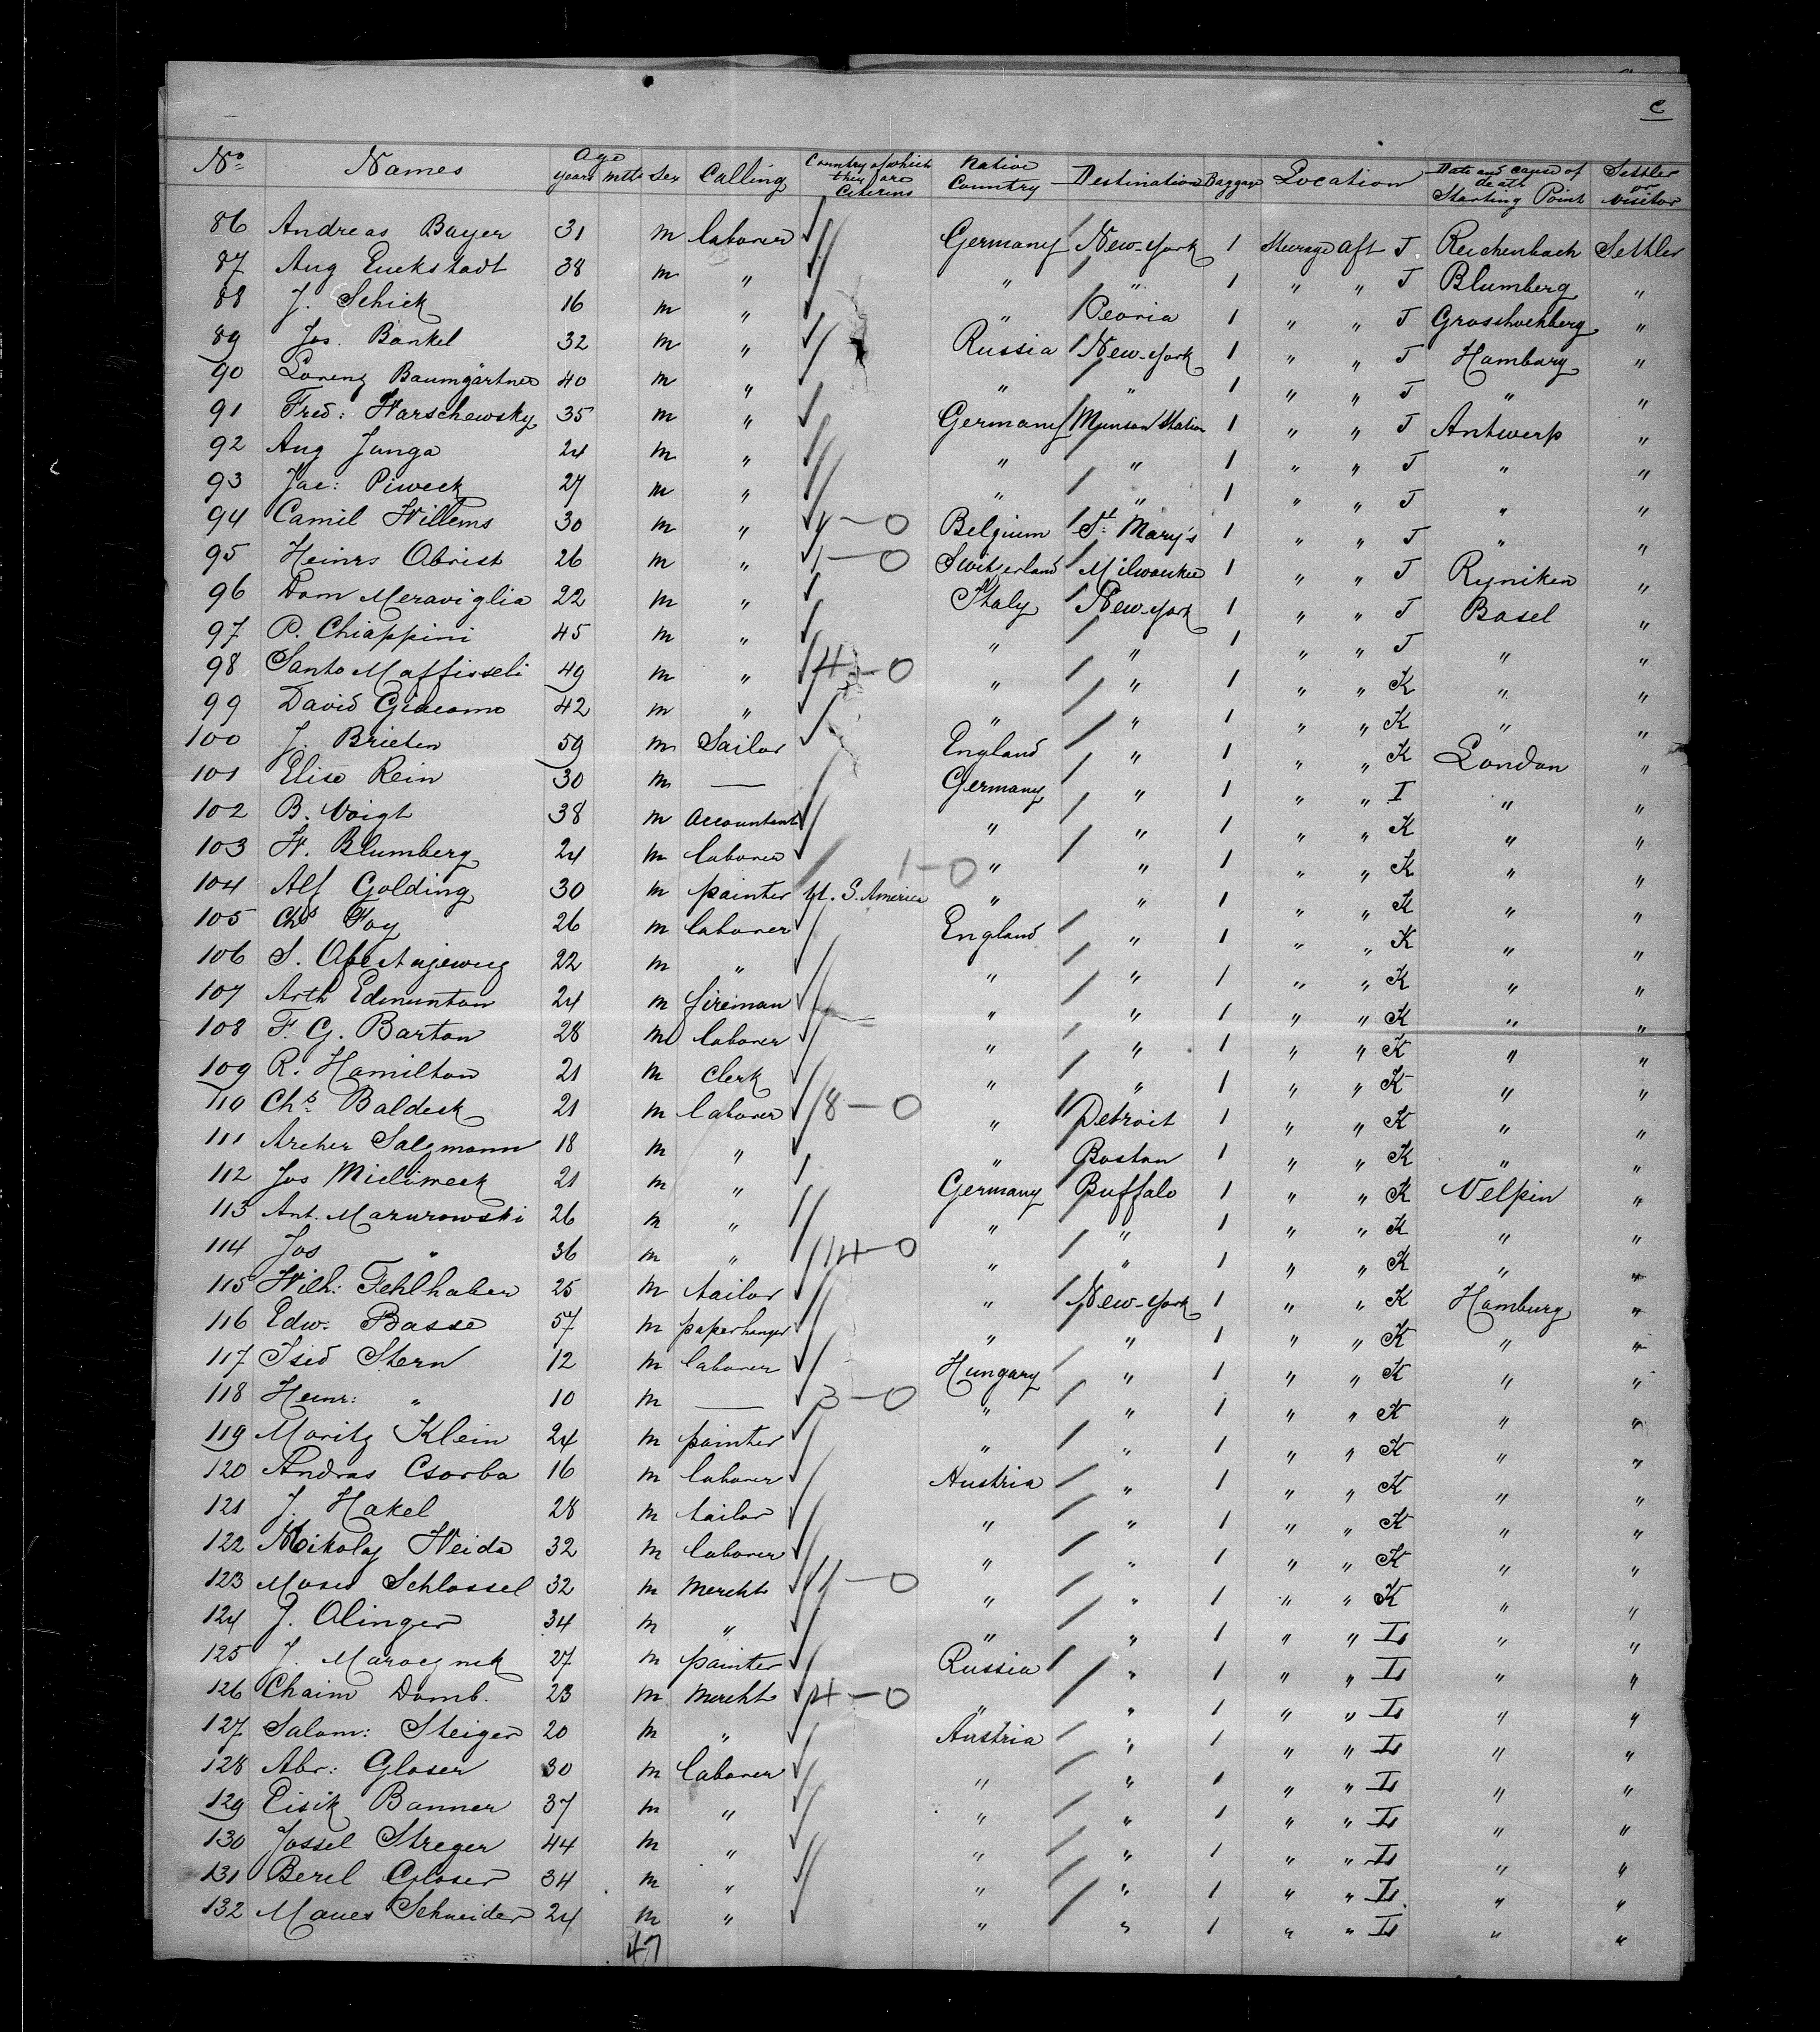 C
No. Names Age years mths Sex Calling Country of which they are Citizens Native Country Destination Baggage Location Date and cause of death Starting Point Settler or visitor
86 Andreas Bayer 31 m laborer Germany New-York 1 Steerage aft J Reichenbach Settler
87 Aug Euckstadt 38 m " " " 1 " " J Blumberg "
88 J. Schick 16 m " " Peoria 1 " " J "
89 Jos. Bankel 32 m " Russia New-York 1 " " J Hamburg "
90 Lorenz Baumgärtner 40 m " " " 1 " " J " "
91 Fred: Warschewsky 35 m " Germany Munson Station 1 " " J Antwerp "
92 Aug Janga 24 m " " " 1 " " J " "
93 Jac: Piweck 27 m " " " 1 " " J " "
94 Camil Willems 30 m " 4-0 Belgium St. Mary's 1 " " J " "
95 Heinrs Obrist 26 m " 1-0 Switzerland Milwaukee 1 " " J Ryniken "
96 Dom Meraviglia 22 m " Italy New-York 1 " " J Basel "
97 P. Chiappini 45 m " " " 1 " " J " "
98 Santo 49 m " 4-0 " " 1 " " K " "
99 David Giacomo 42 m " " " 1 " " K " "
100 J. Brieten 59 m Sailor England " 1 " " K London "
101 Elise Rein 30 m — Germany " 1 " " I " "
102 B. Voigt 38 m accountant " " 1 " " K " "
103 W. Blumberg 24 m laborer 1-0 " " 1 " " K " "
104 Alf Golding 30 m painter U. S. America " " 1 " " K " "
105 Chs Foy 26 m laborer England " 1 " " K " "
106 S. 22 m " " " 1 " " K " "
107 Arth Edmunton 24 m fireman " " 1 " " K " "
108 F. G. Barton 28 m laborer " " 1 " " K " "
109 R. Hamilton 21 m Clerk " " 1 " " K " "
110 Chs. Baldeck 21 m laborer 8-0 " Detroit 1 " " K " "
111 Archer Salzmann 18 m " " Boston 1 " " K " "
112 Jos 21 m " Germany Buffalo 1 " " K Velpin "
113 Ant. Mazurowski 26 m " " " 1 " " K " "
114 Jos " 36 m " 14-0 " " 1 " " K " "
115 Wilh: Fehlhaber 25 m tailor " New-York 1 " " K Hamburg "
116 Edw. Basse 57 m paperhanger " " 1 " " K " "
117 Isid Stern 12 m laborer Hungary " 1 " " K " "
118 Heinr: " 10 m — 3-0 " " 1 " " K " "
119 Moritz Klein 24 m painter " " 1 " " K " "
120 Andras Csorba 16 m laborer Austria " 1 " " K " "
121 J. Hakel 28 m tailor " " 1 " " K " "
122 Mikolaj Weida 32 m laborer " " 1 " " K " "
123 Moses Schlossel 32 m Mercht -0 " " 1 " " K " "
124 J. Olinger 34 m " " " 1 " " L " "
125 J. 27 m painter Russia " 1 " " L " "
126 Chaim Domb. 23 m Mercht 4-0 " " 1 " " L " "
127 Salom: Steiger 20 m " Austria " 1 " " L " "
128 Abr: Glaser 30 m laborer " " 1 " " L " "
129 Eisik Banner 37 m " " " 1 " " L " "
130 Jossel Streger 44 m " " " 1 " " L " "
131 Berl Glaser 34 m " " " 1 " " L " "
132 Manes Schneider 24 m " " " 1 " " L " "
47